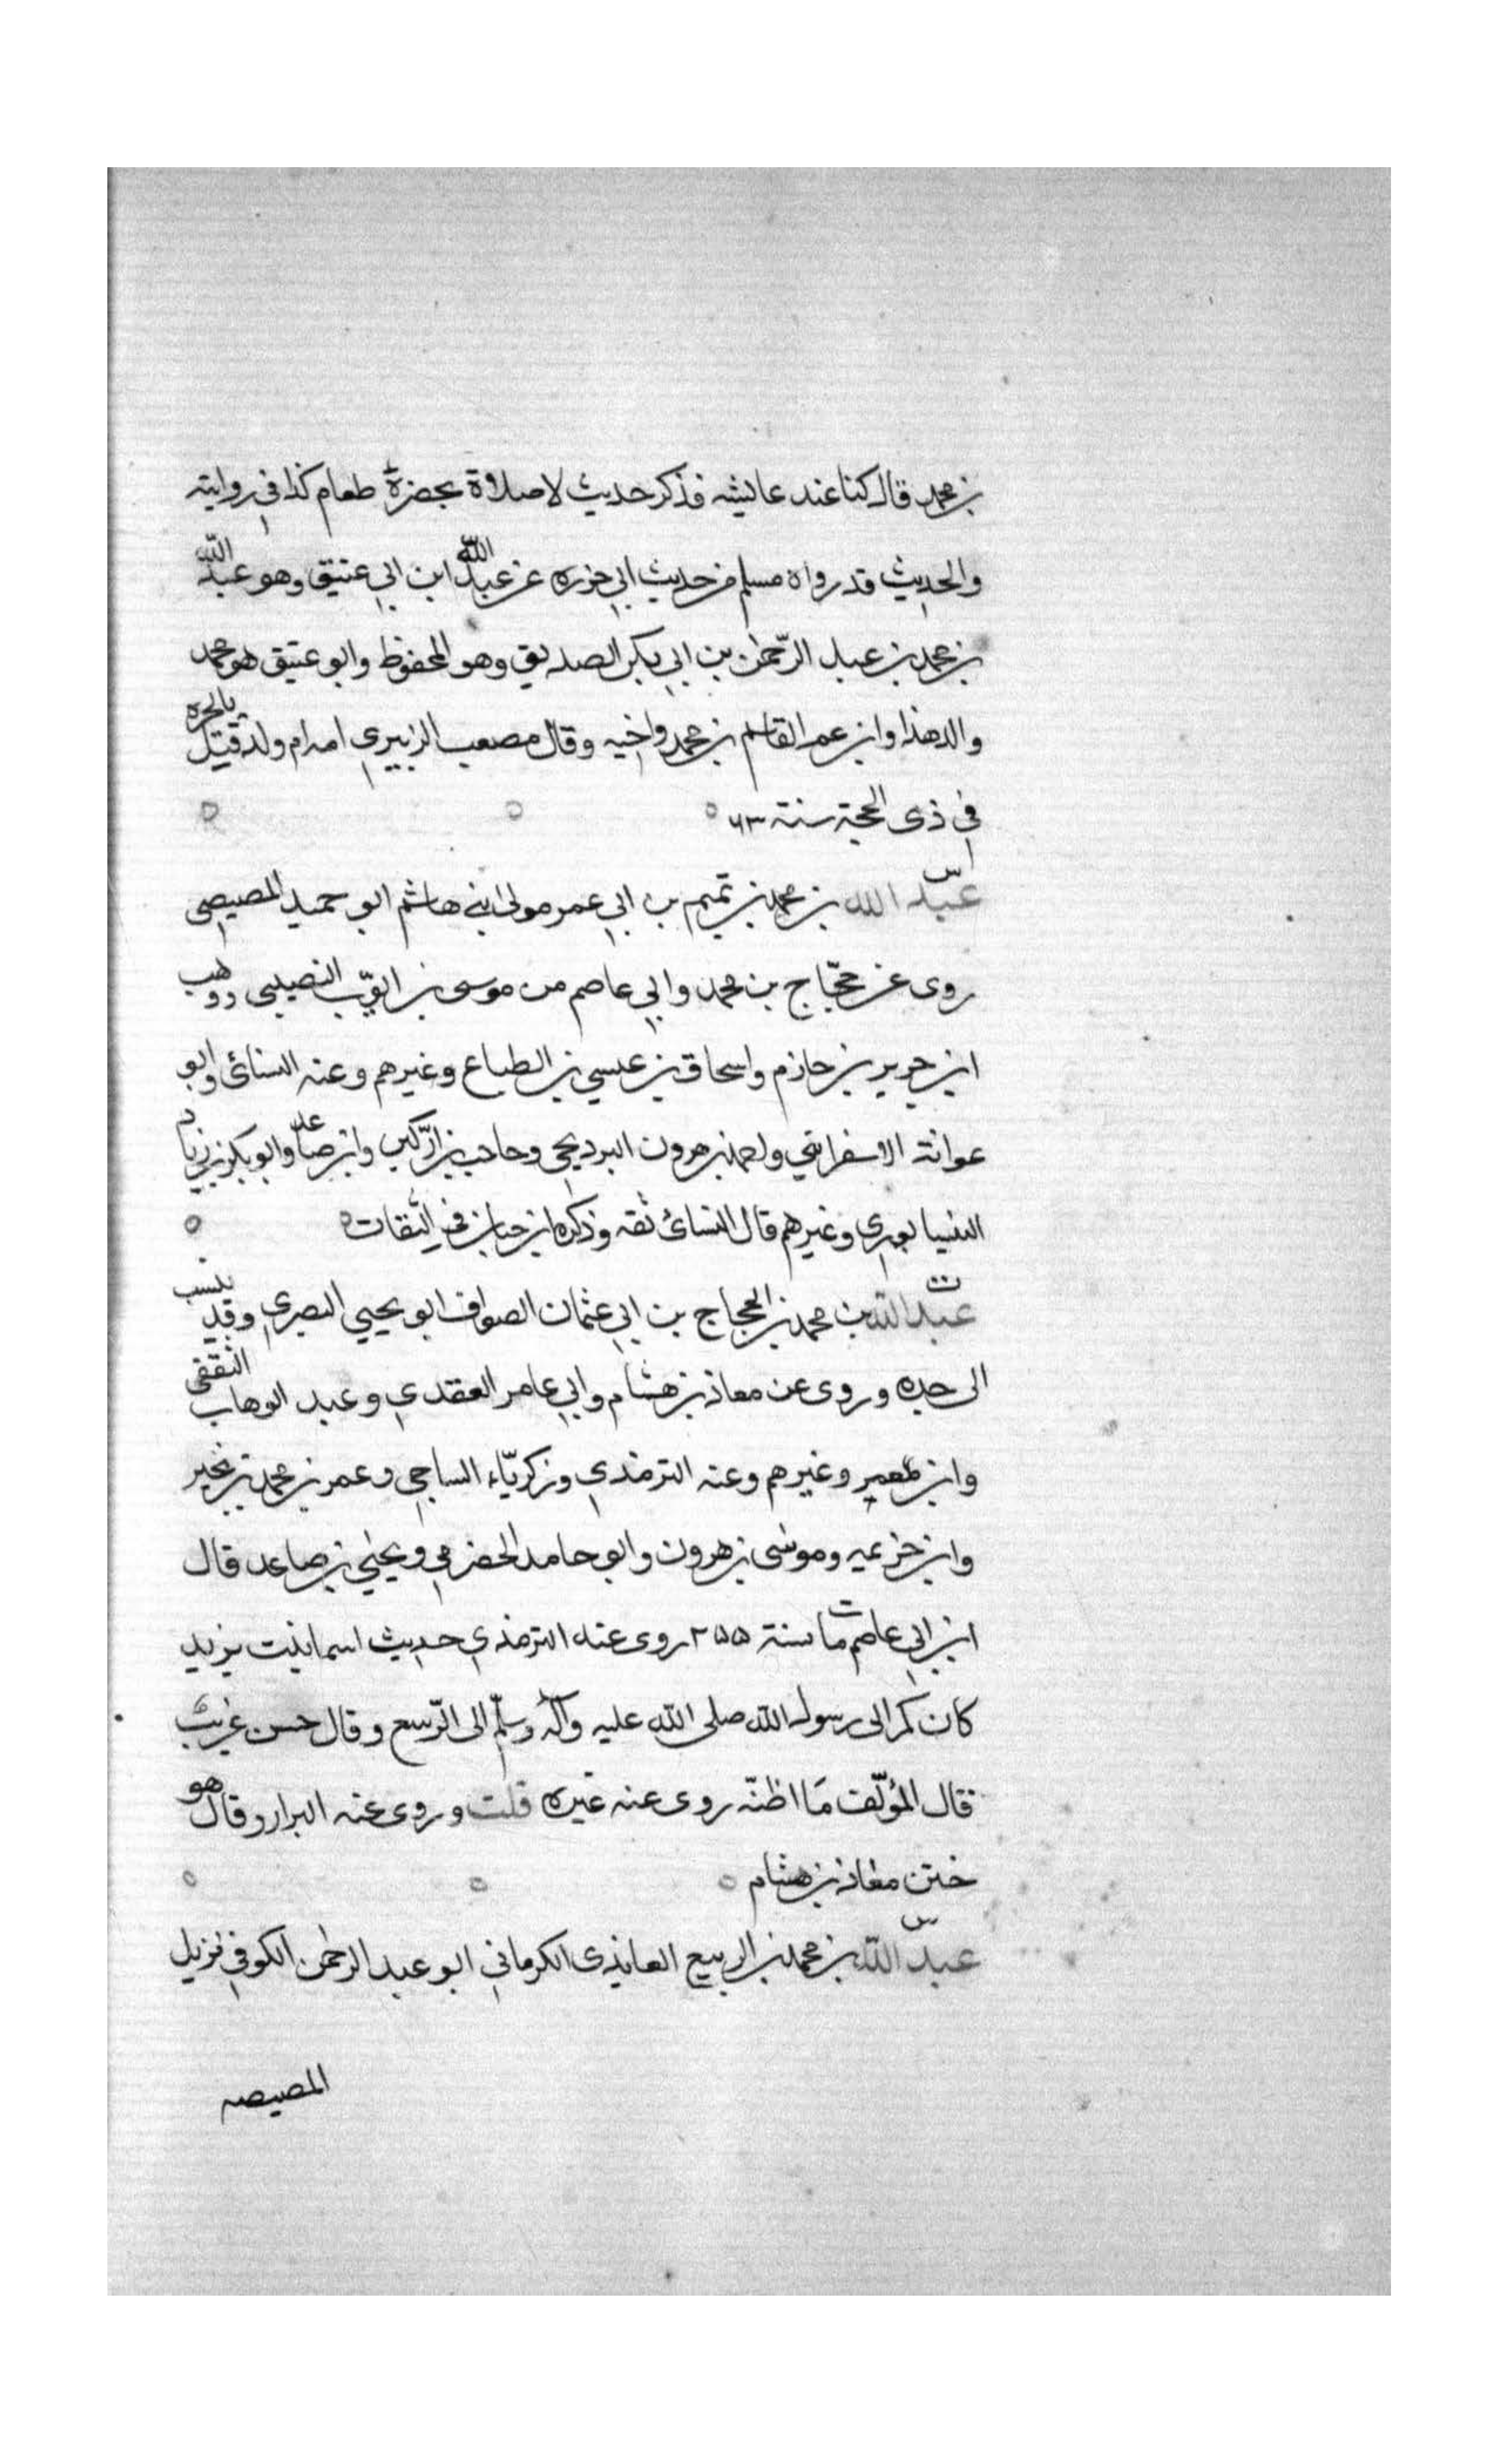 بن محمد قال كنا عند عايشه فذكر حديث لا صلاة بحضرة طعام كذا في روايته
والحديث قد رواه مسلم من حديث ابي حزره عن عبد الله ابن ابي عتيق وهو عبد الله
بن محمد بن عبد الرّحمٰن بن ابي بكر الصديق وهو المحفوظ وابو عتيق هو محمد
والد هذا وابن عم القاسم بن محمد واخيه وقال مصعب الزبيري امه ام ولد قتل بالحره
في ذى الحجة سنة ٦٣
س
عبد الله بن محمد بن تميم بن ابي عمر مولى ابني هاشم ابو حميد المصيصي
روى عن حجّاج بن محمد وابي عاصم من موسى بن ايوّب النصيبي ووهب
ابن جرير بن حازم واسحاق بن عيسي بن الطباع وغيرهم وعنه النسائى وابو
عوانة الاسفرايني واحمد بن هرون البرديجي وحاجب بن ارّكين وابن صاعد وابو بكر بن زياد
النيسابوري وغيرهم قال النسائ ثقه وذكره ابن حبان في الثقات
ت
عبد الله بن محمد بن الحجاج بن ابي عثمان الصواف ابو يحيى البصري وقد ينسب
الى جده وروى عن معاذ بن هشام وابي عامر العقدي وعبد الوهاب الثقفي
وابن وغيرهم وعنه الترمذي وزكريّاء الساجي وعمر بن محمد بن بجير
وابن خزيمه وموسى بن هرون وابو حامد الحضرمي ويحيٰي بن صاعد قال
ابن ابي عاصم مات سنة ٢٥٥ روى عنه الترمذي حديث اسما بنت يزيد
كان كم الى رسول الله صلى الله عليه وآله وسلّم الى الرّسغ وقال حسن غريب
قال المؤلّف مَا اظنّه روى عنه غيره قلت وروى عنه البزار وقال هو
ختن معاذ بن هشام
س
عبد الله بن محمد بن الربيع العايذى الكرماني ابو عبد الرحمٰن الكوفي نزيل
المصيصه